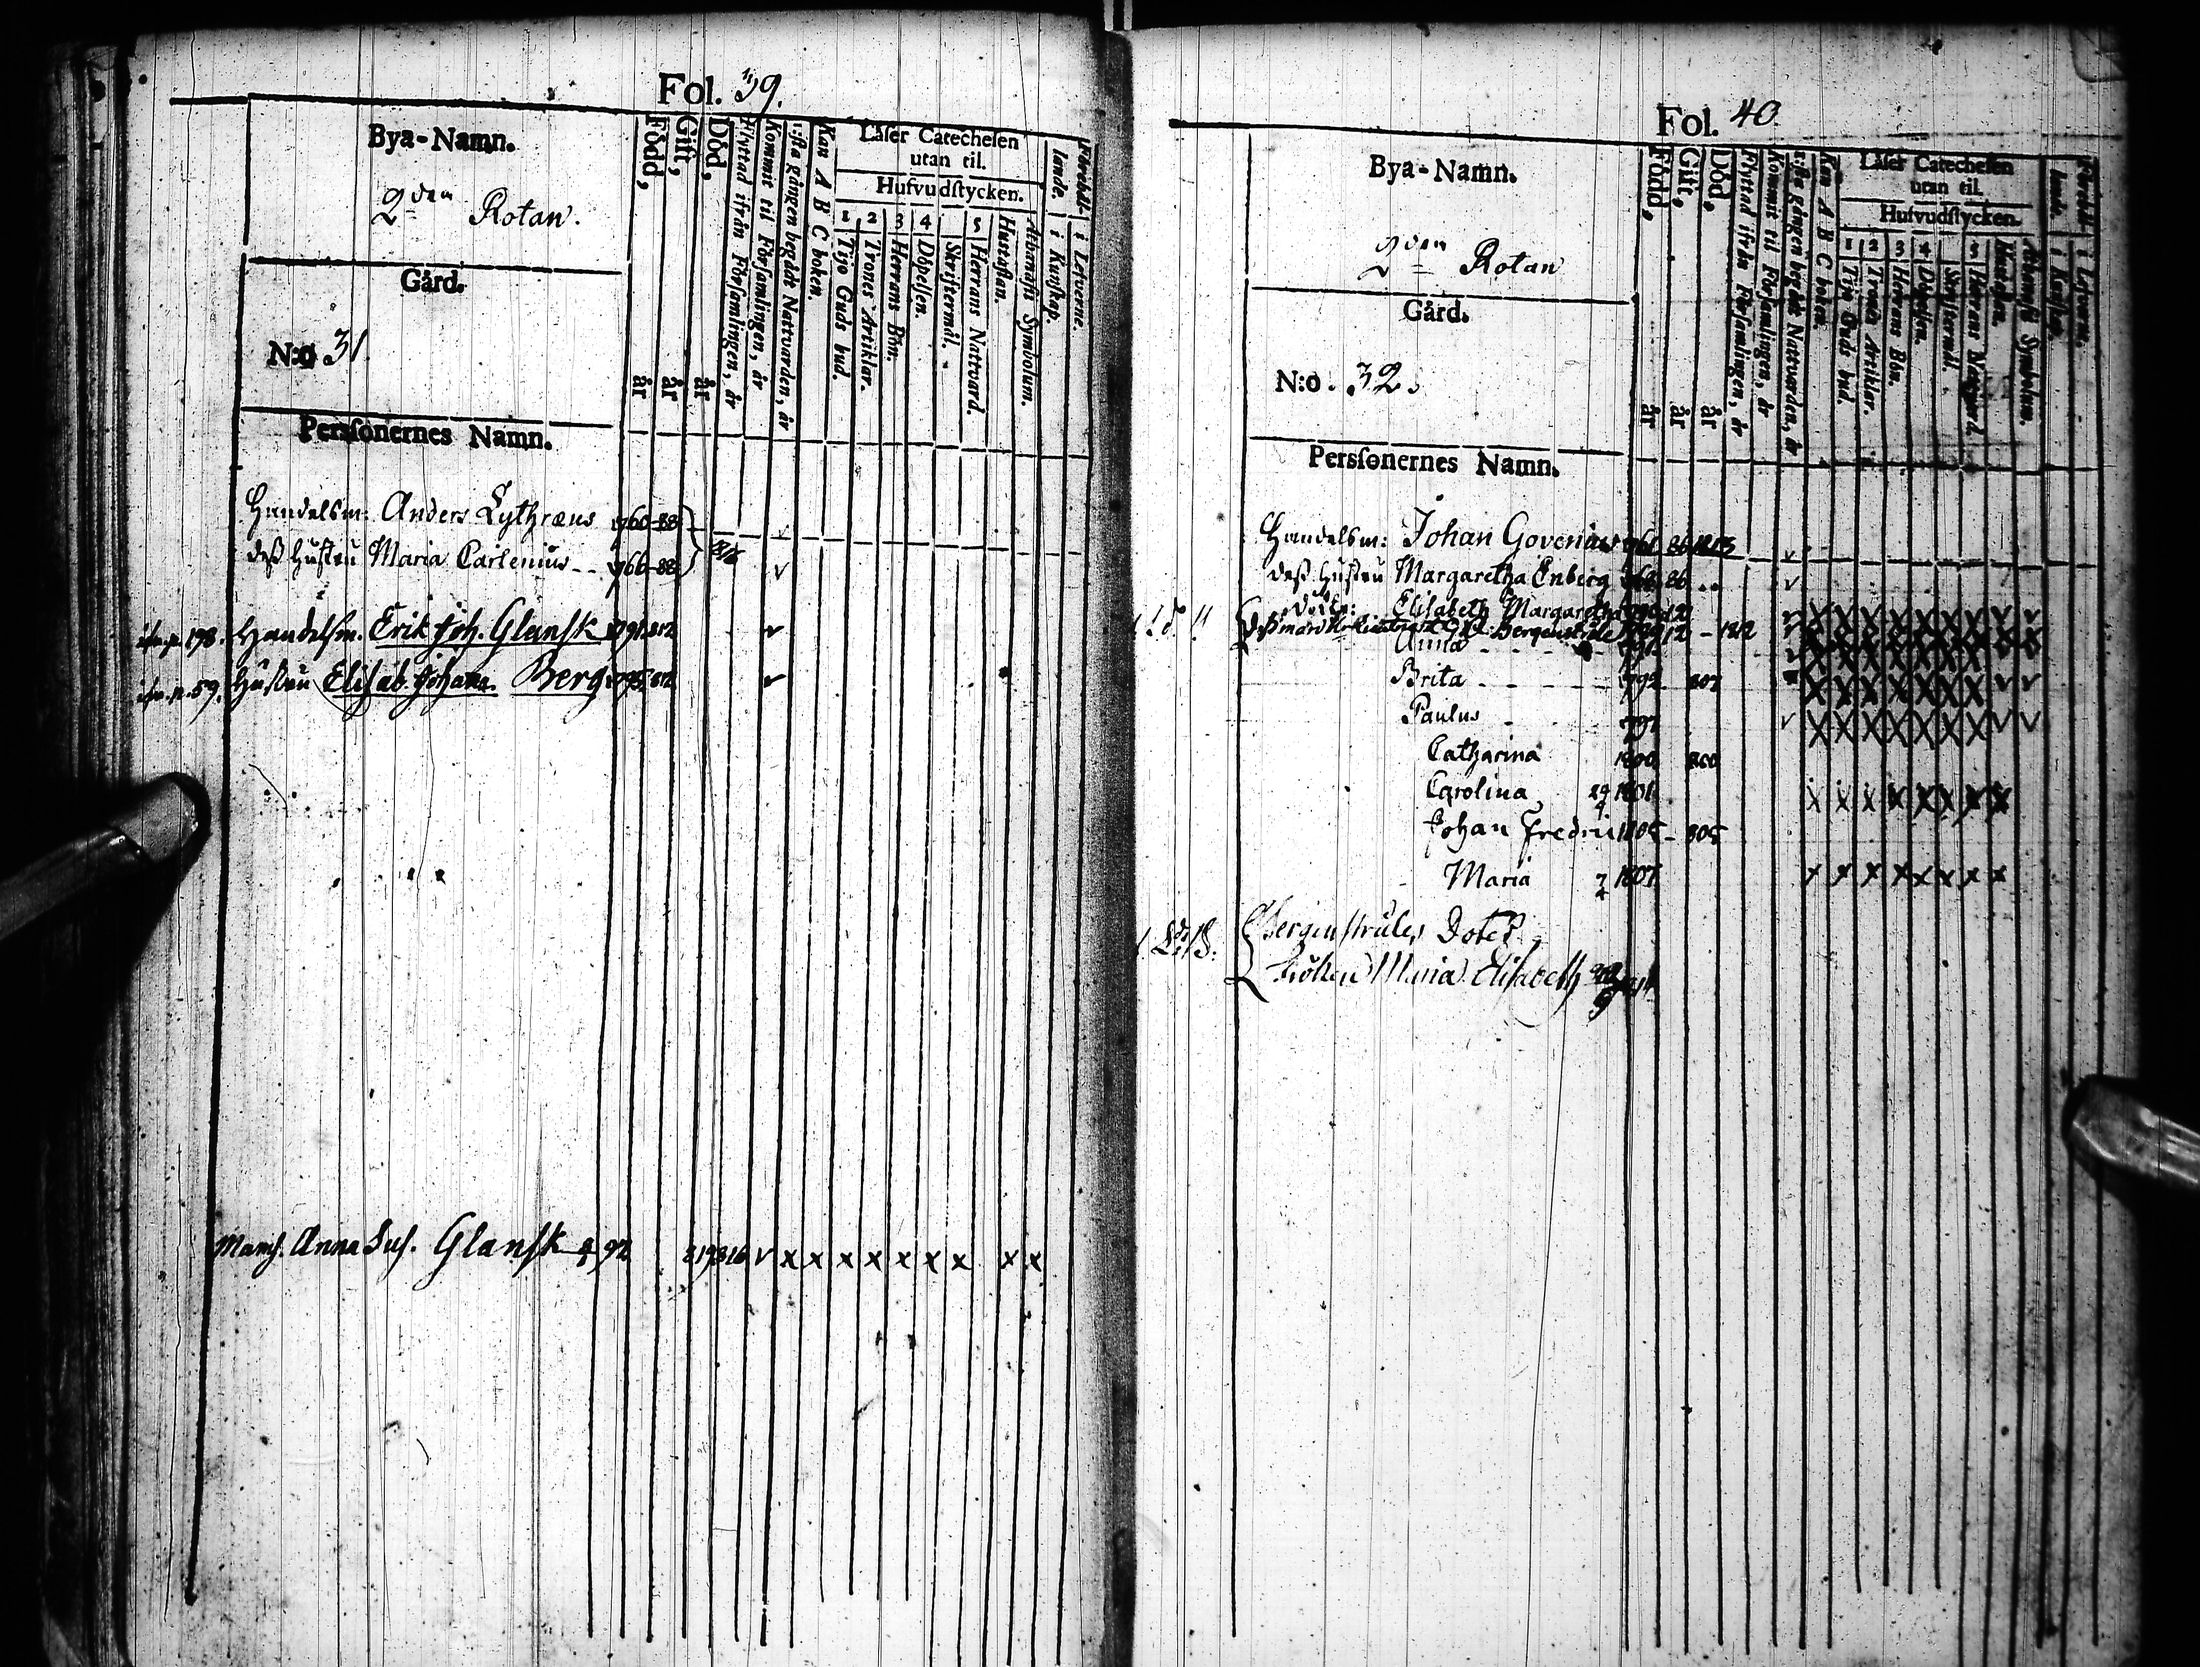 Fol. 39.
Bya-Namn.
2den Rotan.
Gård.
N:o 31
Persſonernes Namn.
Född, år
Gift, år
Död, år
Flyttad ifrån Förſamlingen, år
Kommit til Förſamlingen, år
1:ſta gången begådt Nattvarden, år
Kan A B C boken.
Läſer Catecheſen
utan til.
Hufvudſtycken.
1 Tijo Guds bud.
2 Trones Artiklar.
3 Herrans Bön.
4 Döpelſen.
Skriftermål.
5 Herrans Nattvard.
Huſtaflan.
Athanaſii Symbolum.
Förehål-
lande.
i Kunſkap.
i Lefverne.
Handelsm: Anders Lythræus 1760 - 88
deß hustru Maria Carlenius - - 1766 - 88
p. 198. Handelsm. Erik Joh. Glansk 1791 812
p. 59. Hustru Elisab. Johana. Berg 1795 812
Mams. Anna Sus. Glansk 4/4 92 819 816 v x x x x x x x x x
Fol. 40
Bya-Namn.
2den Rotan
Gård.
N:o. 32.
Persſonernes Namn.
Född, år
Gift, år
Död, år
Flyttad ifrån Förſamlingen, år
Kommit til Förſamlingen, år
1:ſta gången begådt Nattvarden, år
Kan A B C boken.
Läſer Catecheſen
utan til.
Hufvudſtycken.
1 Tijo Guds bud.
2 Trones Artiklar.
3 Herrans Bön.
4 Döpelſen.
Skriftermål.
5 Herrans Nattvard.
Huſtaflan.
Athanaſii Symbolum.
Förehål-
lande.
i Kunſkap.
i Lefverne.
Handelsm: Johan Govenius 1761 86 1813
deß hustru Margaretha Enberg 1768 86
Elisabeth Margaretha
Bergenstråle 12 - 1812
Anna - - - 1791
Brita - - - 1792 807
Paulus - 1797
Catharina 1800 800
Carolina 29/4 1801
Johan Fredric 1805 - 805
Maria 7/2 1807
Bergenstråles Doter
fröken Maria Elisabeth